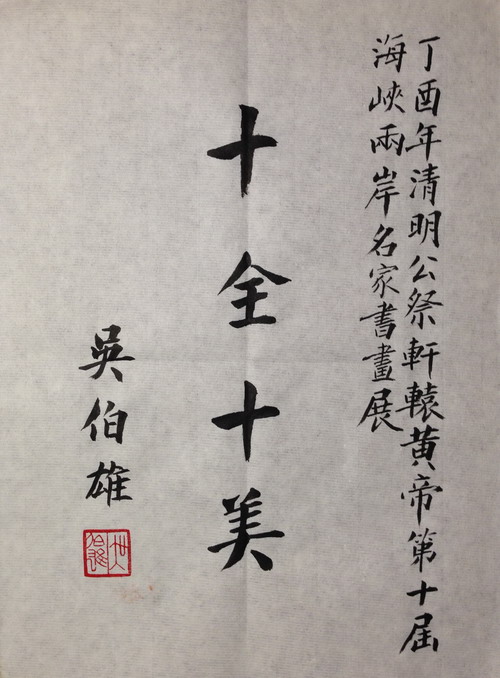 丁酉年清明公祭軒轅黄帝第十届
海峽兩岸名家書畫展
十全十美
吳伯雄